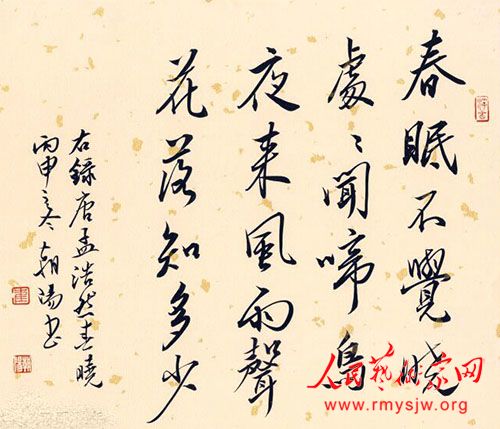 春眠不覺曉
處〻聞啼鳥
夜来風雨聲
花落知多少
右録唐孟浩然春曉
丙申之冬朝陽书
人民艺术家网
www.rmysjw.org